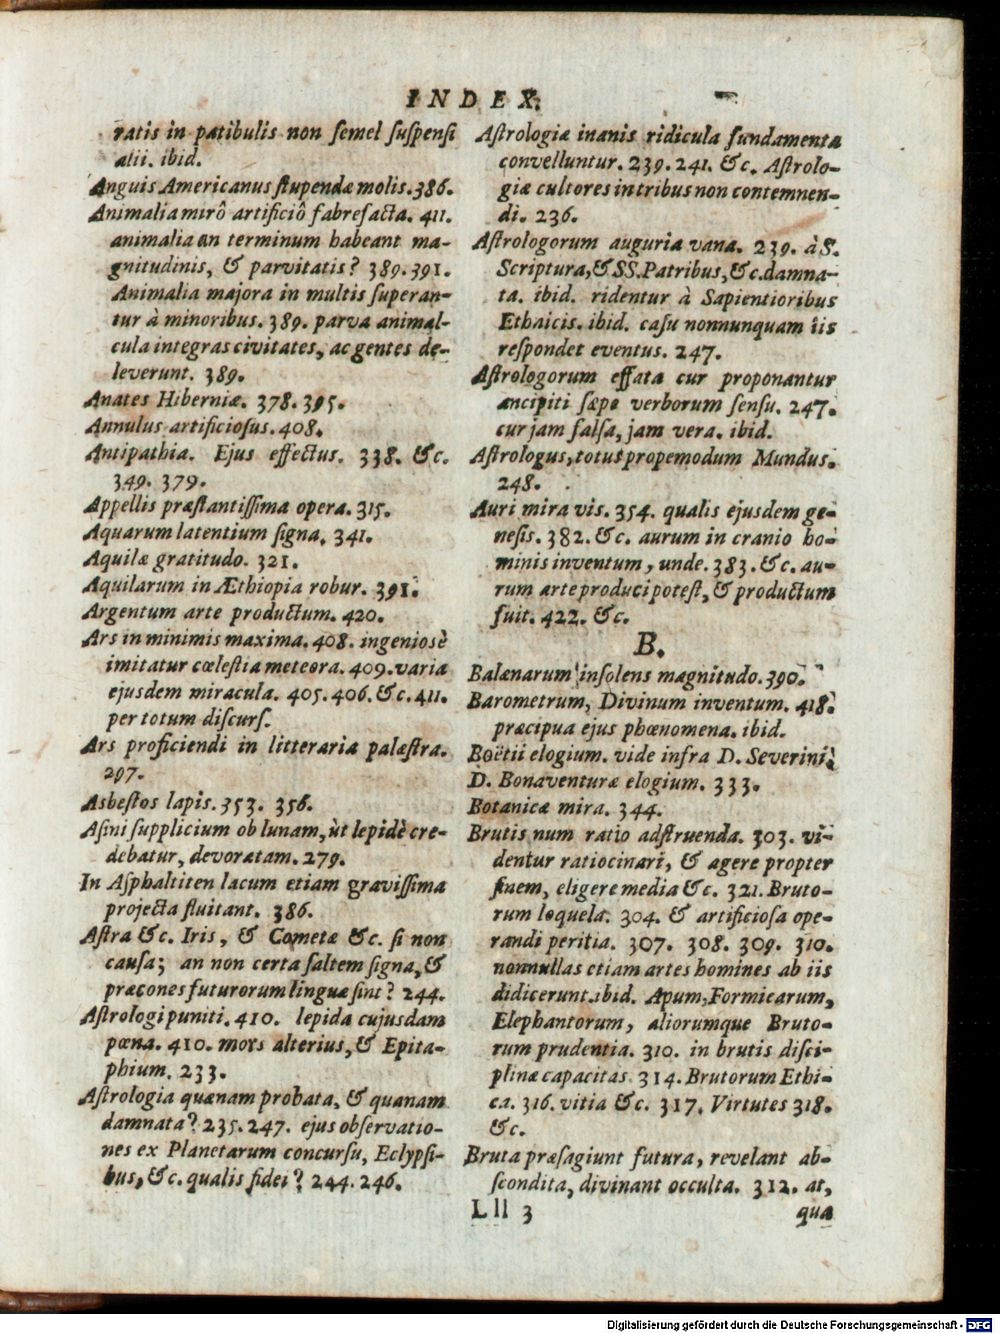 INDEX.
ratis in patibulis non semel suspensi
alii. ibid.
Anguis Americanus stupendæ molis. 386.
Animalia mirô artificiô fabrefacta. 411.
animalia an terminum habeant ma-
gnitudinis, & parvitatis? 389. 391.
Animalia majora in multis superan-
tur à minoribus. 389. parva animal-
cula integras civitates, ac gentes de-
leverunt. 389.
Anates Hiberniæ. 378. 395.
Annulus artificiosus. 408.
Antipathia. Ejus effectus. 338. &c.
349. 379.
Appellis præstantissima opera. 315.
Aquarum latentium signa. 341.
Aquilæ gratitudo. 321.
Aquilarum in Æthiopia robur. 391.
Argentum arte productum. 420.
Ars in minimis maxima. 408. ingeniosè
imitatur cœlestia meteora. 409. varia
ejusdem miracula. 405. 406. &c. 411.
per totum discurs.
Ars proficiendi in litteraria palæstra.
297.
Asbestos lapis. 353. 356.
Asini supplicium ob lunam, ùt lepidè cre-
debatur, devoratam. 279.
In Asphaltiten lacum etiam gravissima
projecta fluitant. 386.
Astra &c. Iris, & Cometæ &c. si non
causa; an non certa saltem signa, &
præcones futurorum linguæ sint? 244.
Astrologi puniti. 410. lepida cujusdam
pœna. 410. mors alterius, & Epita-
phium. 233.
Astrologia quænam probata, & quænam
damnata? 235. 247. ejus observatio-
nes ex Planetarum concursu, Eclypsi-
bus, &c. qualis fidei? 244. 246.
Astrologiæ inanis ridicula fundamenta
convelluntur. 239. 241. &c. Astrolo-
giæ cultores in tribus non contemnen-
di. 236.
Astrologorum auguria vana. 239. à S.
Scriptura, & SS. Patribus, &c. damna-
ta. ibid. ridentur à Sapientioribus
Ethnicis. ibid. casu nonnunquam iis
respondet eventus. 247.
Astrologorum effata cur proponantur
ancipiti sæpe verborum sensu. 247.
cur jam falsa, jam vera. ibid.
Astrologus, totus propemodum Mundus.
248.
Auri mira vis. 354. qualis ejusdem ge-
nesis. 382. &c. aurum in cranio ho-
minis inventum, unde. 383. &c. au-
rum arte produci potest, & productum
fuit. 422. &c.
B.
Balænarum insolens magnitudo. 390.
Barometrum, Divinum inventum. 418.
præcipua ejus phœnomena. ibid.
Boëtii elogium. vide infra D. Severini.
D. Bonaventuræ elogium. 333.
Botanicæ mira. 344.
Brutis num ratio adstruenda. 303. vi-
dentur ratiocinari, & agere propter
finem, eligere media &c. 321. Bruto-
rum loquela. 304. & artificiosa ope-
randi peritia. 307. 308. 309. 310.
nonnullas etiam artes homines ab iis
didicerunt. ibid. Apum, Formicarum,
Elephantorum, aliorumque Bruto-
rum prudentia. 310. in brutis disci-
plinæ capacitas. 314. Brutorum Ethi-
ca. 316. vitia &c. 317. Virtutes 318.
&c.
Bruta præsagiunt futura, revelant ab-
scondita, divinant occulta. 312. at,
Lll 3
qua
Digitalisierung gefördert durch die Deutsche Forschungsgemeinschaft - DFG